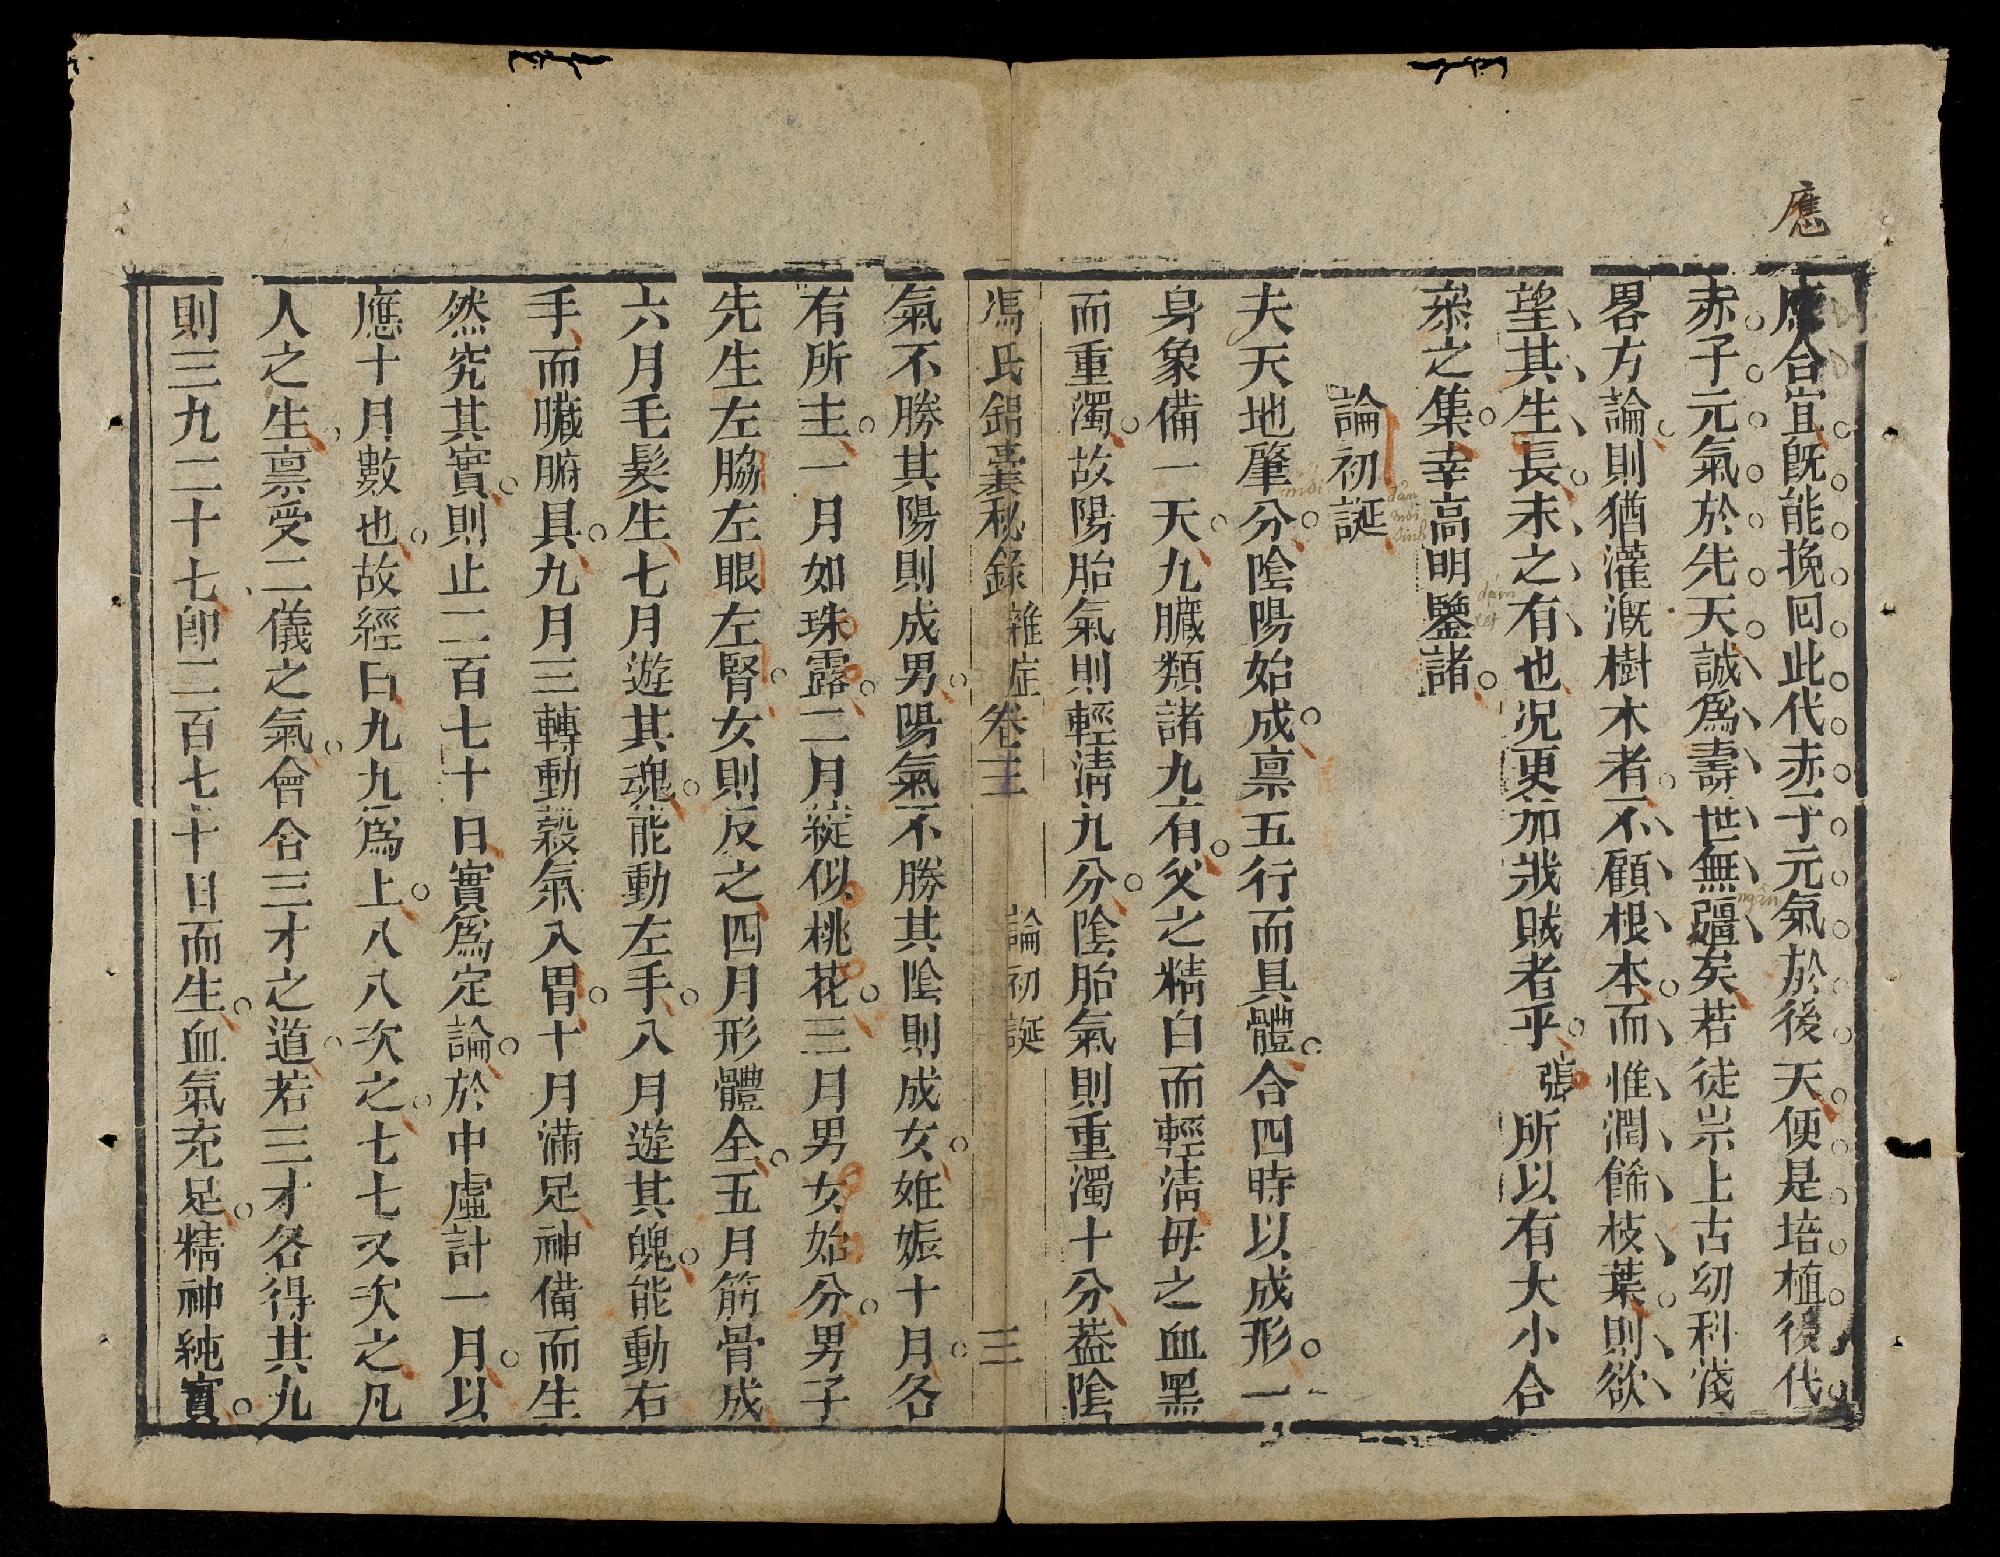 應
應合宜既能挽囘此代赤子元氣於後天便是培植後代
赤子元氣於先天誠爲壽世無疆矣若徒崇上古幼科淺
畧方論則猶灌溉樹木者不顧根本而惟潤餙枝葉則欲
望其生長未之有也况更加戕賊者乎張所以有大小合
叅之集幸高明鑒諸
論初誕
夫天地肇分陰陽始成禀五行而具體合四時以成形一
身象備一天九臟類諸九有父之精白而輕淸毋之血黑
而重濁故陽胎氣則輕淸九分陰胎氣則重濁十分葢陰
馮氏錦囊秘錄 雜症卷三 論初誕 三
氣不勝其陽則成男陽氣不勝其陰則成女姙娠十月各
有所主一月如珠露二月綻似桃花三月男女始分男子
先生左脇左眼左腎女則反之四月形體全五月筋骨成
六月毛髮生七月遊其魂能動左手八月遊其魄能動右
手而臟腑具九月三轉動榖氣入胃十月滿足神備而生
然究其實則止二百七十日實爲定論於中虛計一月以
應十月數也故經曰九九爲上八八次之七七又次之凡
人之生禀受二儀之氣會合三才之道若三才各得其九
則三九二十七卽二百七十日而生血氣充足精神純實
mới
dản
mới
sinh
dám
xét
ngần